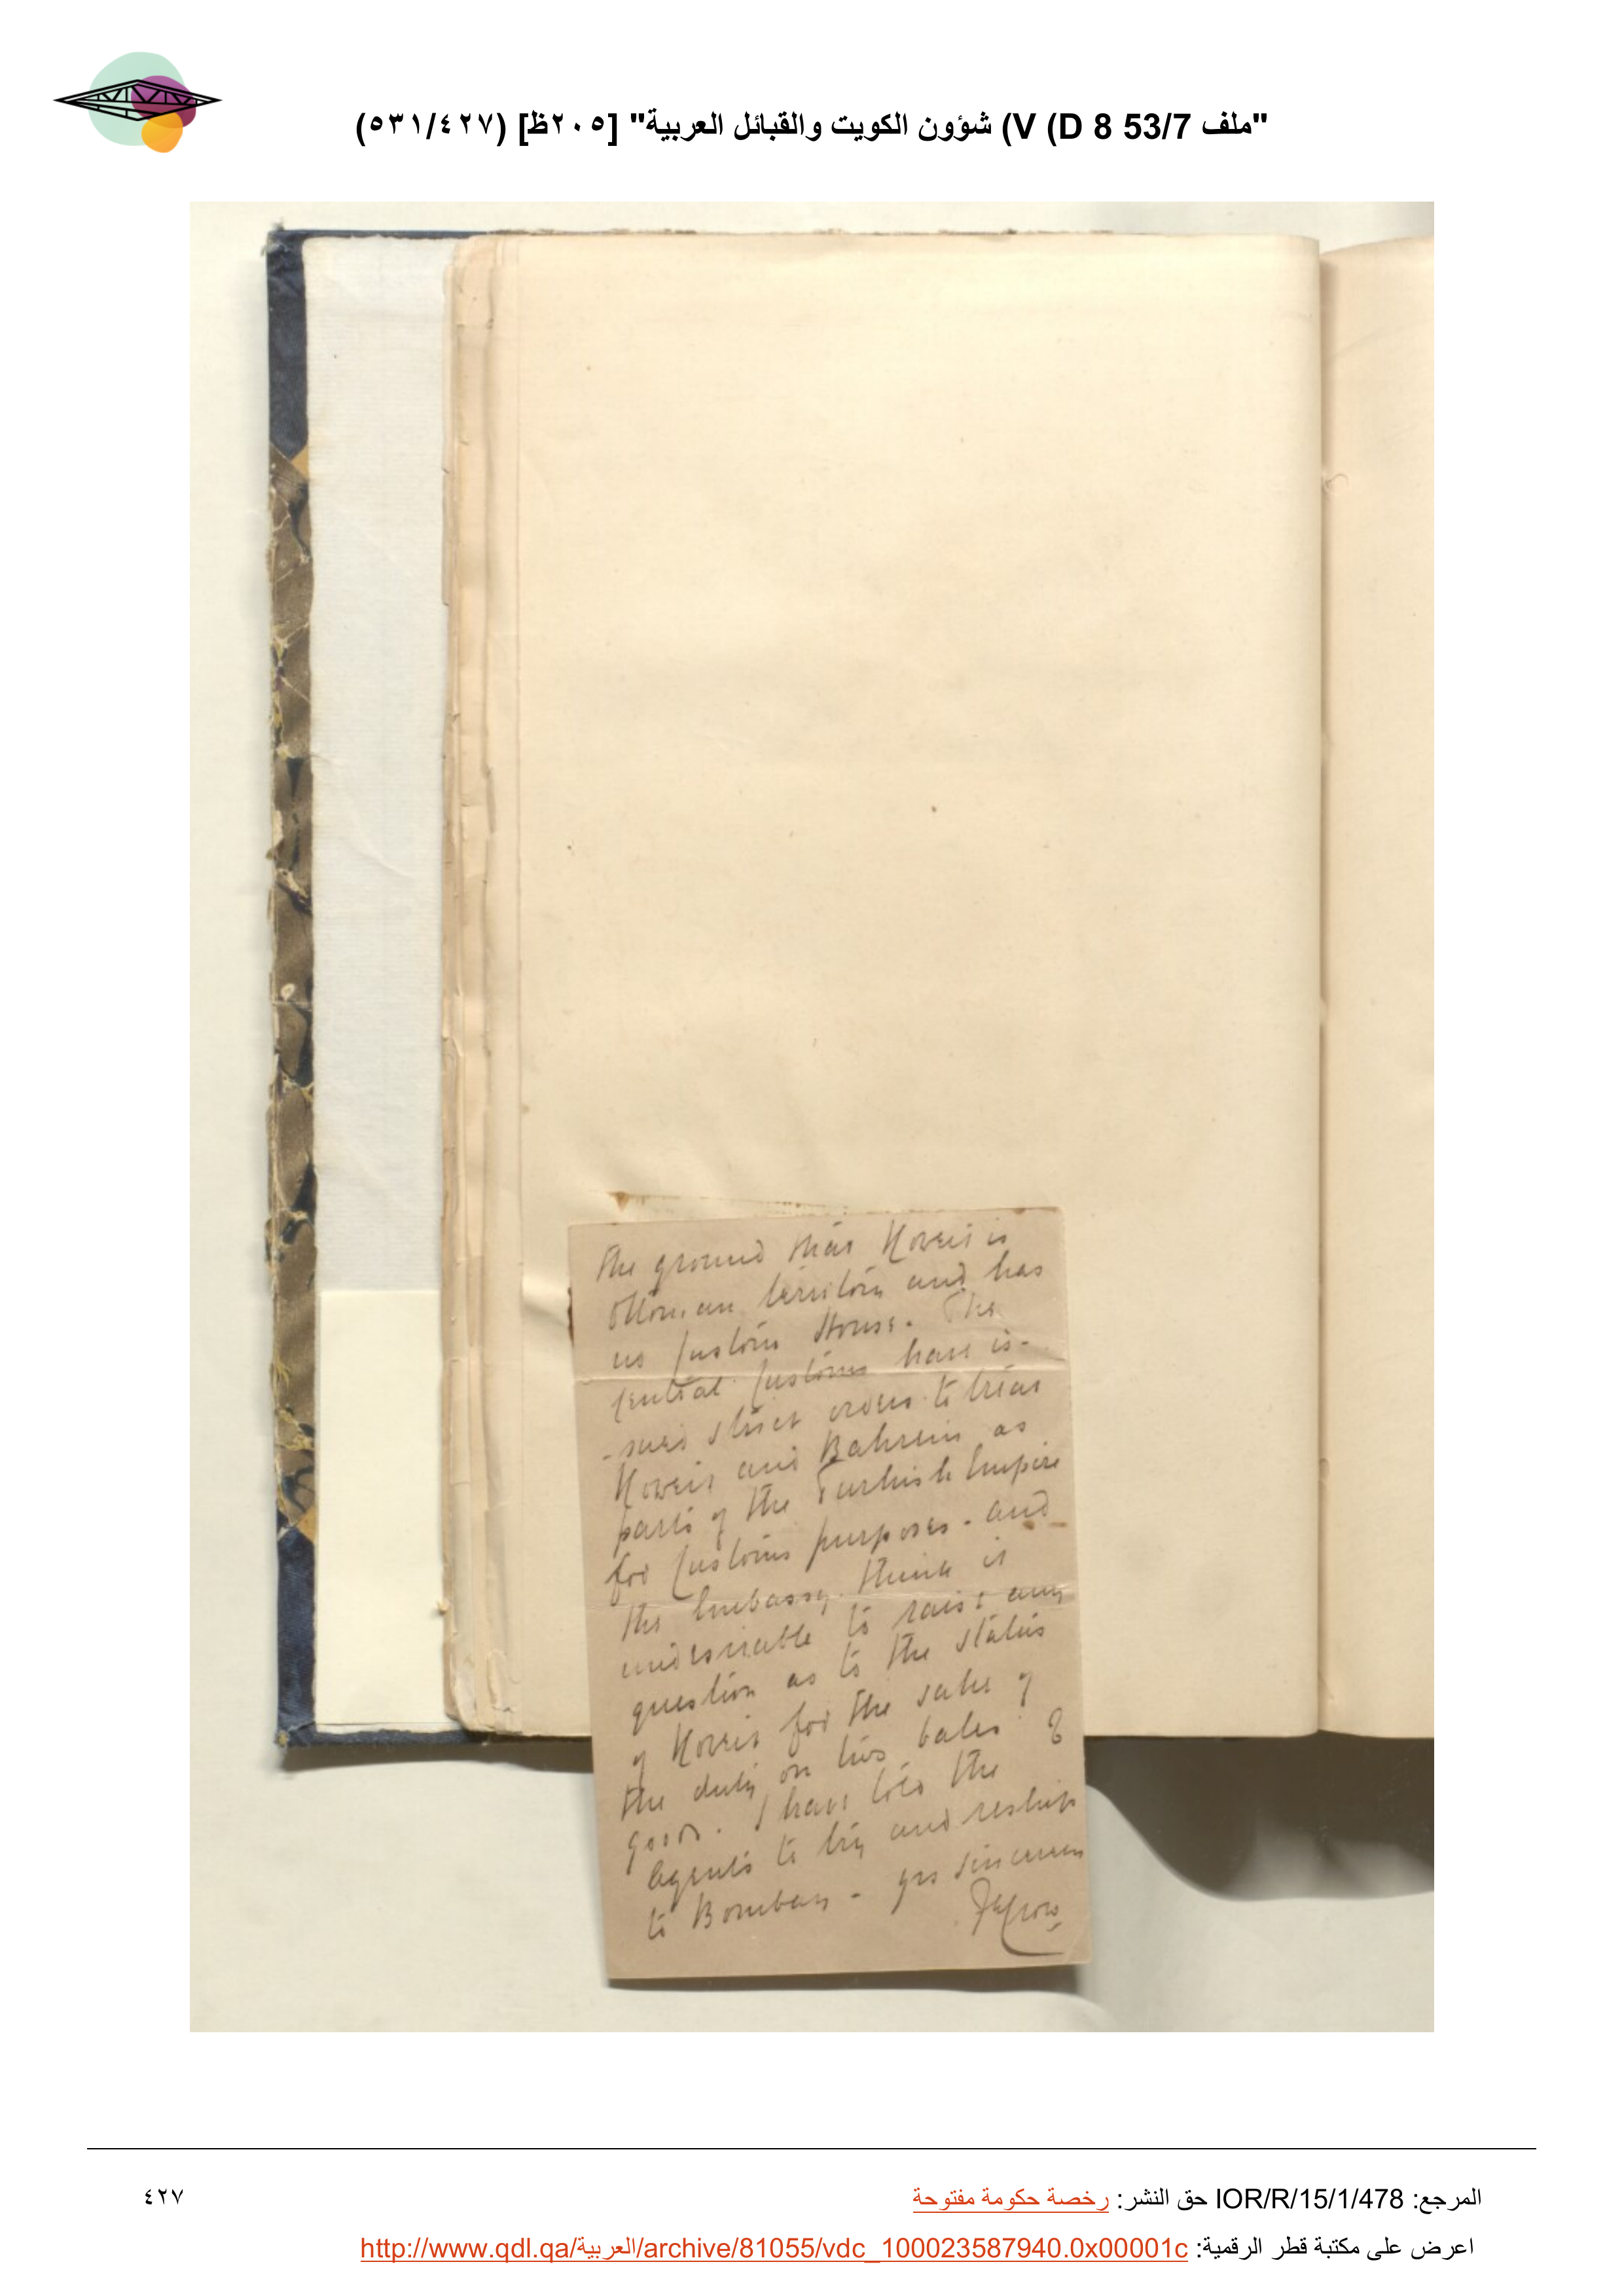 "ملف 53/7 D 8) V) شؤون الكويت والقبائل العربية" [٢٠٥ظ] (٥٣١/٤٢٧)
the ground that Koweit is
Ottoman territory and has
no Customs House. The
Central Customs have is-
-sued strict orders to treat
Koweit and Bahrein as
parts of the Turkish Empire
for Customs purposes - and
the Embassy think it
undesirable to raise any
question as to the status
of Koweit for the sake of
the duty on two bales of
goods. I have told the
Agents to try and reship
to Bombay - yrs sincerely
FECrow
المرجع: IOR/R/15/1/478 حق النشر: رخصة حكومة مفتوحة
٤٢٧
اعرض على مكتبة قطر الرقمية: http://www.qdl.qa/العربية/archive/81055/vdc_100023587940.0x00001c